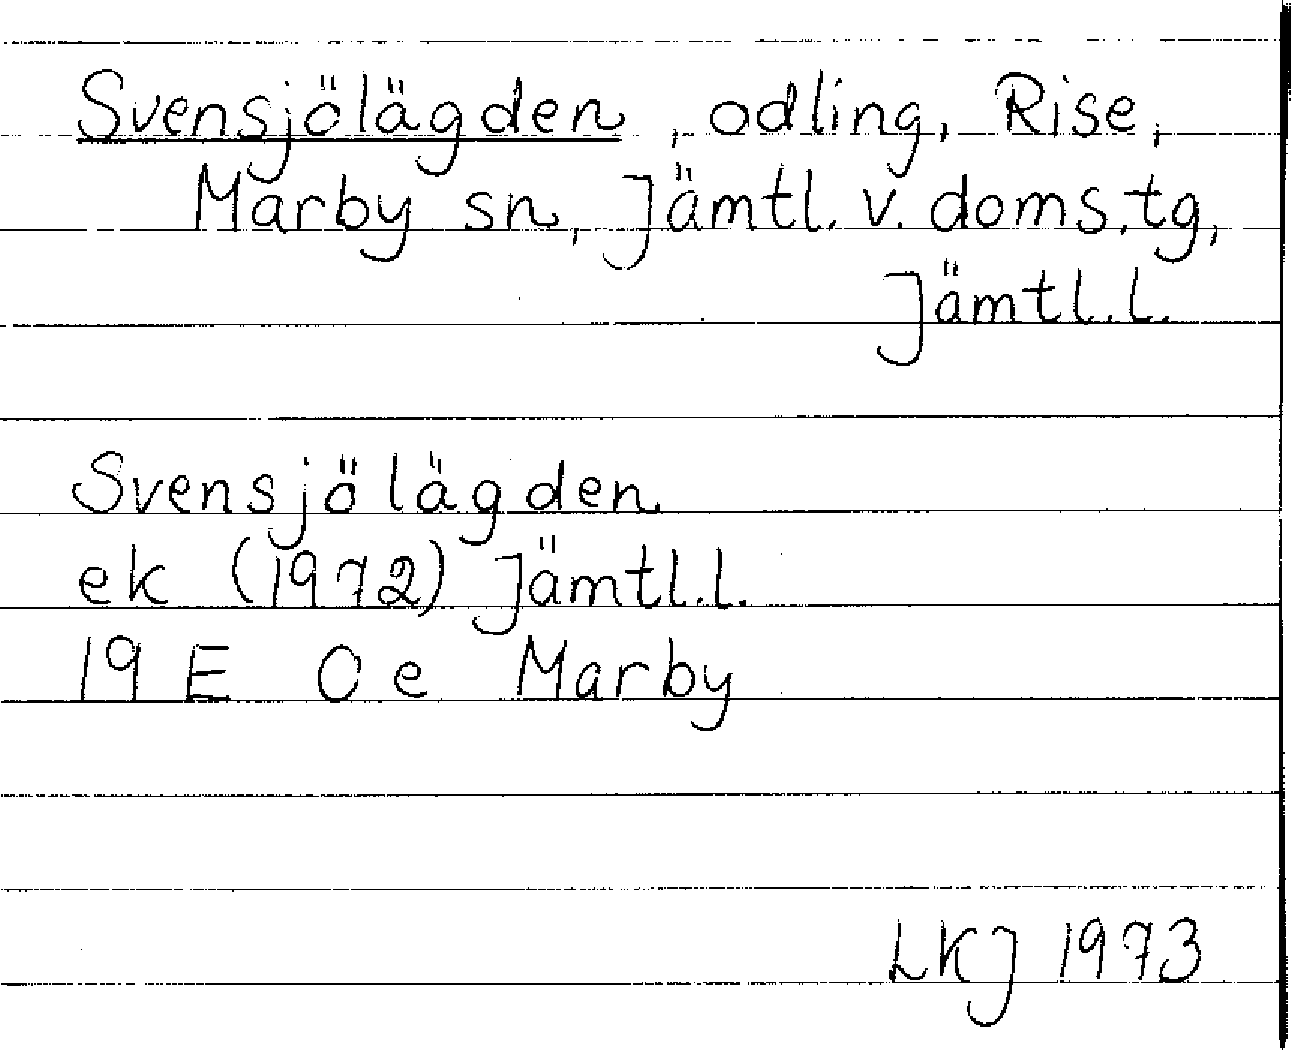 Svensjölägden, odling, Rise,
Marby sn, Jämtl. v. doms.tg,
Jämtl.l.
Svensjölägden
ek (1972) Jämtl.l.
19 E 0 e Marby
LKJ 1973